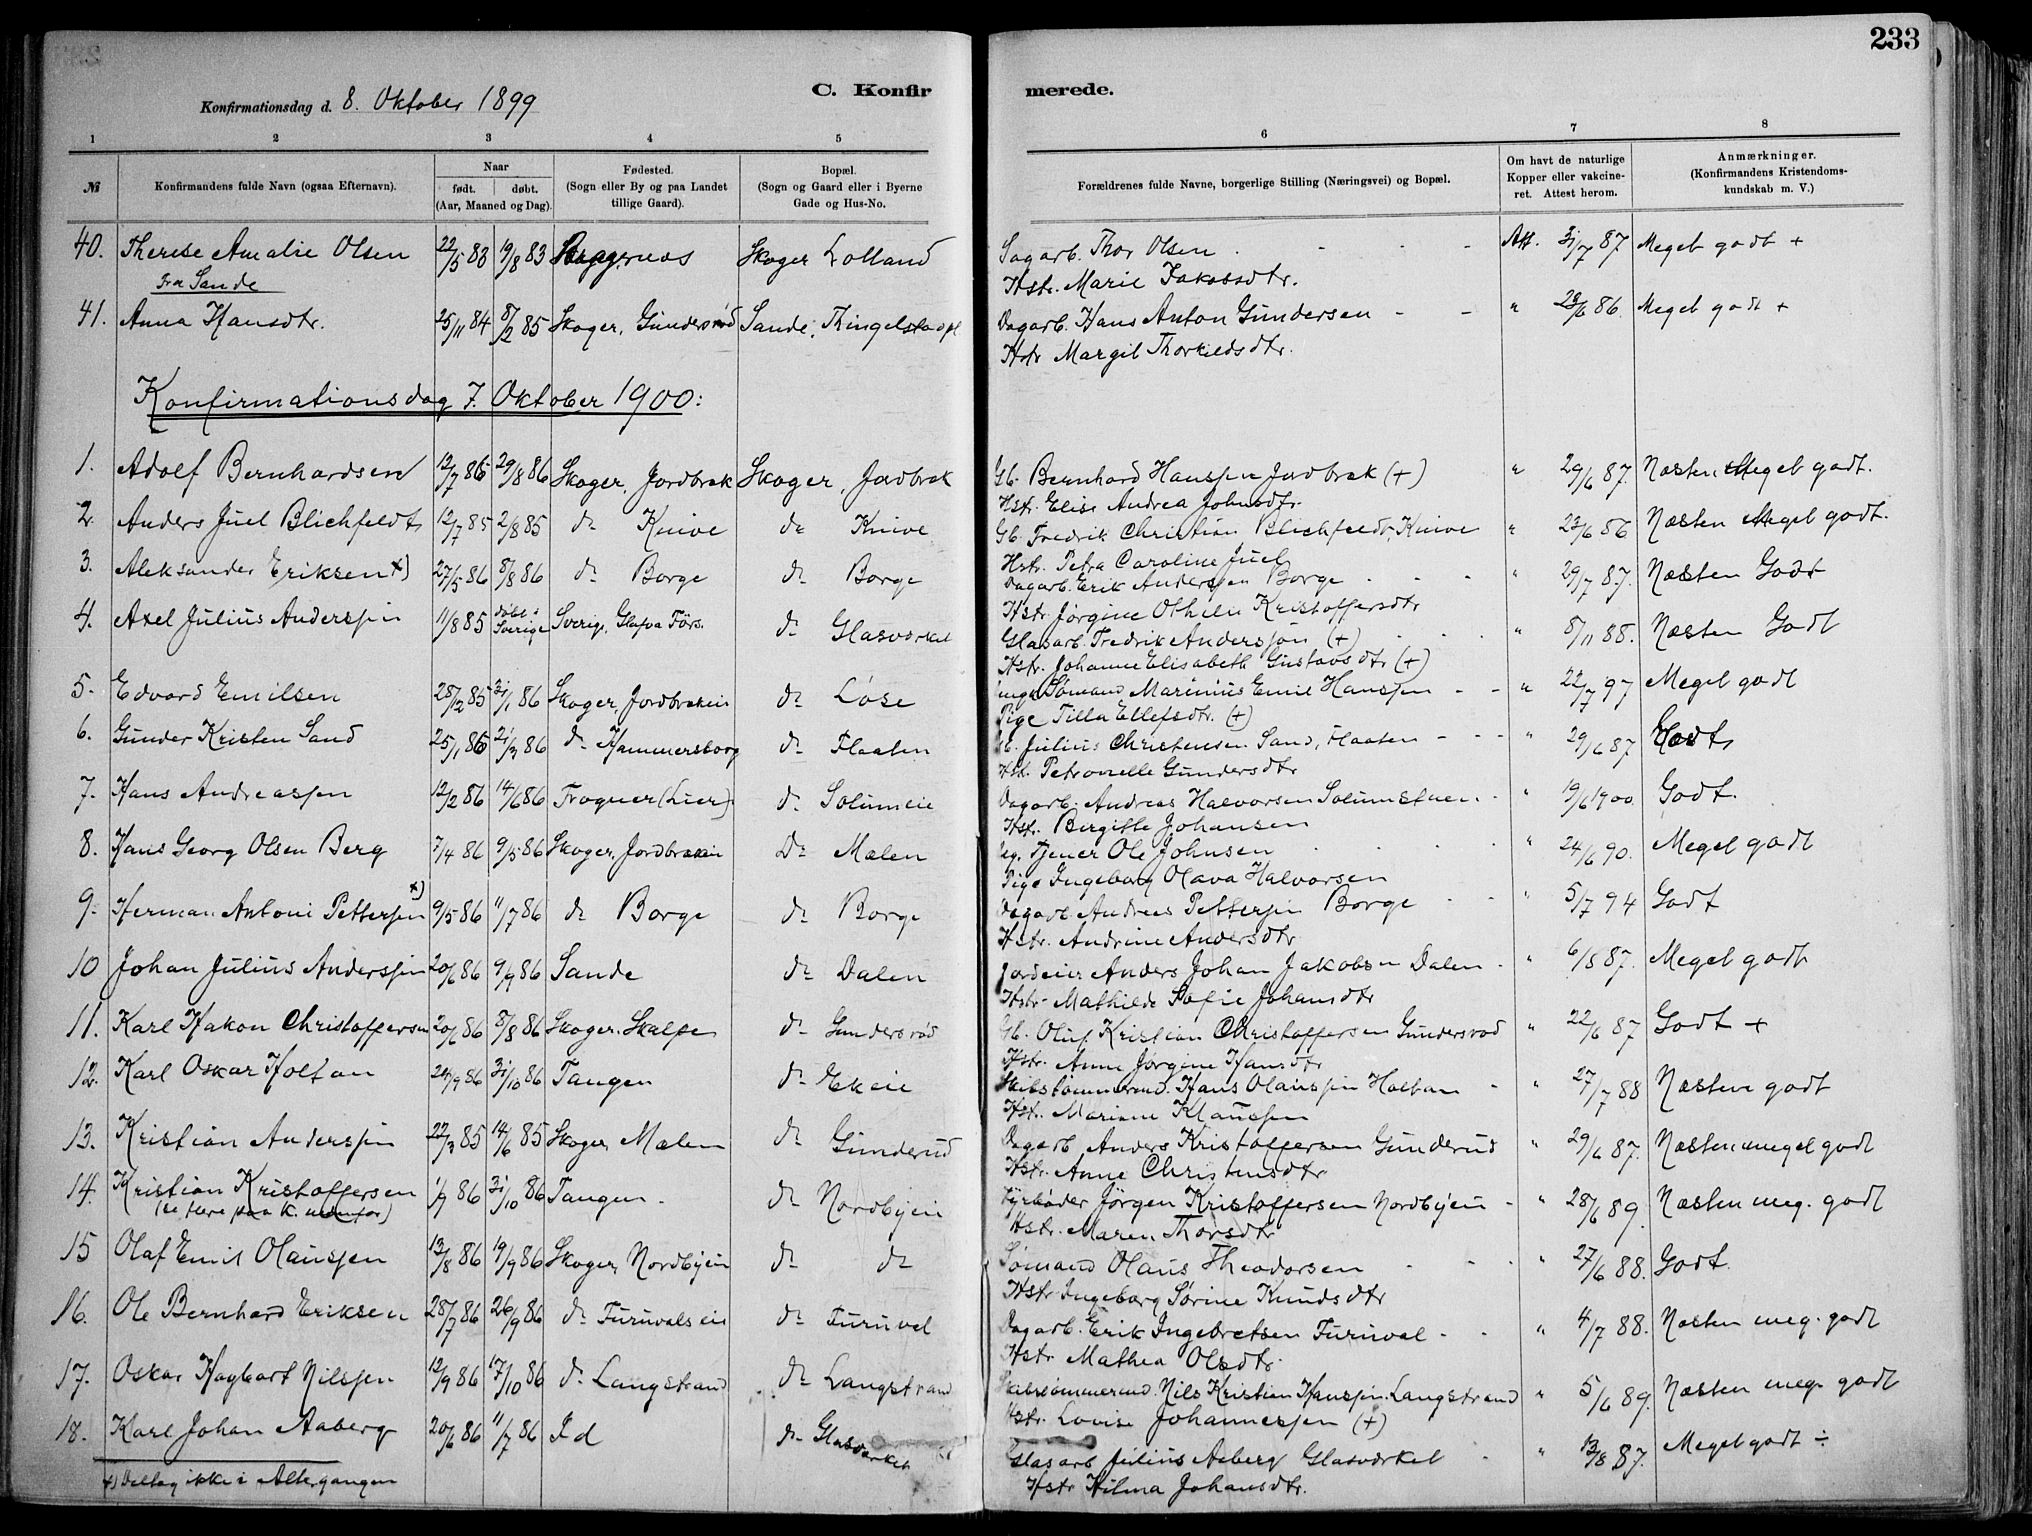 233
Konfirmationsdag d. 8. Oktober 1899
C. Konfirmerede.
1 2 3 4 5 6 7 8
№ Konfirmandens fulde Navn (ogsaa Efternavn). Naar født. døbt. (Aar, Maaned og Dag). Fødested. (Sogn eller By og paa Landet tillige Gaard). Bopæl. (Sogn og Gaard eller i Byerne Gade og Hus-No. Forældrenes fulde Navne, borgerlige Stilling (Næringsvei) og Bopæl. Om havt de naturlige Kopper eller vakcineret. Attest herom. Anmærkninger. (Konfirmandens Kristendomskundskab m. V.)
40. Therese Amalie Olsen 22/5 83 19/8 83 Skoger Lolland Sagarb. Thor Olsen Att. 31/7 87 Meget godt +
fra Sande
Hstr. Marie Jakobsdtr.
41. Anna Hansdtr. 25/11 84 8/2 85 Skoger, Gundersrød Sande, Thingelstadpl Dagarb. Hans Anton Gundersen " 23/6 86. Meget godt +
Hstr Margit Thorkildsdtr.
Konfirmationsdag 7. Oktober 1900:
1. Adolf Bernhardsen 12/7 86 29/8 86 Skoger, Jordbræk Skoger, Jordbræk Gb. Bernhard Hanssen Jordbræk (+) " 29/6 87. Næsten Meget godt.
Hstr. Elise Andrea Johnsdtr.
2. Anders Juel Blichfeldt 12/7 85 2/8 85 do Knive do Knive Gb. Fredrik Christian Blichfeldt, Knive " 23/6 86 Næsten Meget godt.
Hstr. Petra Caroline Juel
3. Aleksander Eriksen x) 27/5 86 8/8 86 do Borge do Borge Dagarb. Erik Anderssen Borge " 29/7 87. Næsten Godt
Hstr. Jørgine Othilie Kristoffersdtr
4. Axel Julius Anderssøn 11/8 85 døbt i Sverige Sverig, Glafva Förs. do Glasværket Glasarb. Fredrik Anderssøn (+) " 8/11 88. Næsten Godt
Hstr. Johanne Elisabeth Gustavsdtr (+)
5. Edvard Emilsen 28/12 85 31/1 86 Skoger, Jordbrækeie do Løse Ungk Sømand Marinius Emil Hanssen " 22/7 97 Meget godt
Pige Tilla Ellefsdtr. (+)
6. Gunder Kristen Sand 25/1 86 21/3 86 do Hammersborg do Flaaten Gb. Julius Christensen Sand, Flaaten " 29/6 87 Godt
Hst. Petronelle Gundersdtr
7. Hans Andreassen 12/2 86 14/6 86 Frogner (Lier) do Solumeie Dagarb. Andreas Halvorsen Solumstuen " 19/6 1900. Godt.
Hstr. Birgitte Johansen
8. Hans Georg Olsen Berg 7/4 86 9/5 86 Skoger, Jordbrækeie Do Mælen Tjener Ole Johnsen " 24/6 90. Meget godt
Pige Ingeborg Olava Halvorsen
9. Herman Antoni Petterssen x) 9/5 86 11/7 86 do Borge do Borge Dagarb Andreas Petterssen Borge " 5/7 94 Godt
Hstr. Andrine Andersdtr
10 Johan Julius Anderssen 20/6 86 9/9 86 Sande do Dalen Jordeier Anders Johan Jakobsen Dalen " 6/8 87. Meget godt
Hstr. Mathilde Sofie Johansdtr
11. Karl Hakon Christoffersen 20/6 86 8/8 86 Skoger, Skalpe do Gundersrød Gb. Oluf Kristian Christoffersen Gundersrød " 22/6 87 Godt +
Hstr. Anne Jørgine Hansdtr
12. Karl Oskar Holtan 24/9 86 31/10 86 Tangen do Ekeie Skibstømmermd. Hans Olaussen Holtan " 27/7 88 Næsten godt
Hstr. Mariane Klaussen
13. Kristian Anderssen 22/3 85 14/6 85 Skoger, Mælen do Gunderud Dagarb Anders Kristoffersen Gunderud " 29/6 87. Næsten meget godt
Hstr. Anne Christensdtr
14. Kristian Kristoffersen 1/9 86 31/10 86 Tangen. do Nordbyen Fyrbøder Jörgen Kristoffersen Nordbyen " 28/6 89. Næsten meg. godt
(se flere paa K. nedenfor)
Hstr. Maren Thorsdtr
15 Olaf Emil Olaussen 13/8 86 19/9 86 Skoger, Nordbyen do do Sømand Olaus Theodorsen " 27/6 88. Godt.
Hstr Ingeborg Sørine Knudsdtr
16. Ole Bernhard Eriksen 28/7 86 26/9 86 do Furuvaleie do Furuval Dagarb. Erik Ingebretsen Furuval " 4/7 88. Næsten meg. godt
Hstr. Mathea Olsdtr.
17. Oskar Hagbart Nilssen 12/9 86 17/10 86 do Langstrand do Langstrand Skibstømmermd. Nils Kristian Hanssen Langstrand " 5/6 89. Næsten meg. godt
Hstr. Lovise Johannessen (+)
18. Karl Johan Aaberg 20/6 86 11/7 86 Id do Glasværket Glasarb Julius Aaberg Glasværket " 13/8 87. Meget godt ÷
Hstr Hilma Johansdtr.
x) Deltog ikke i Altergangen